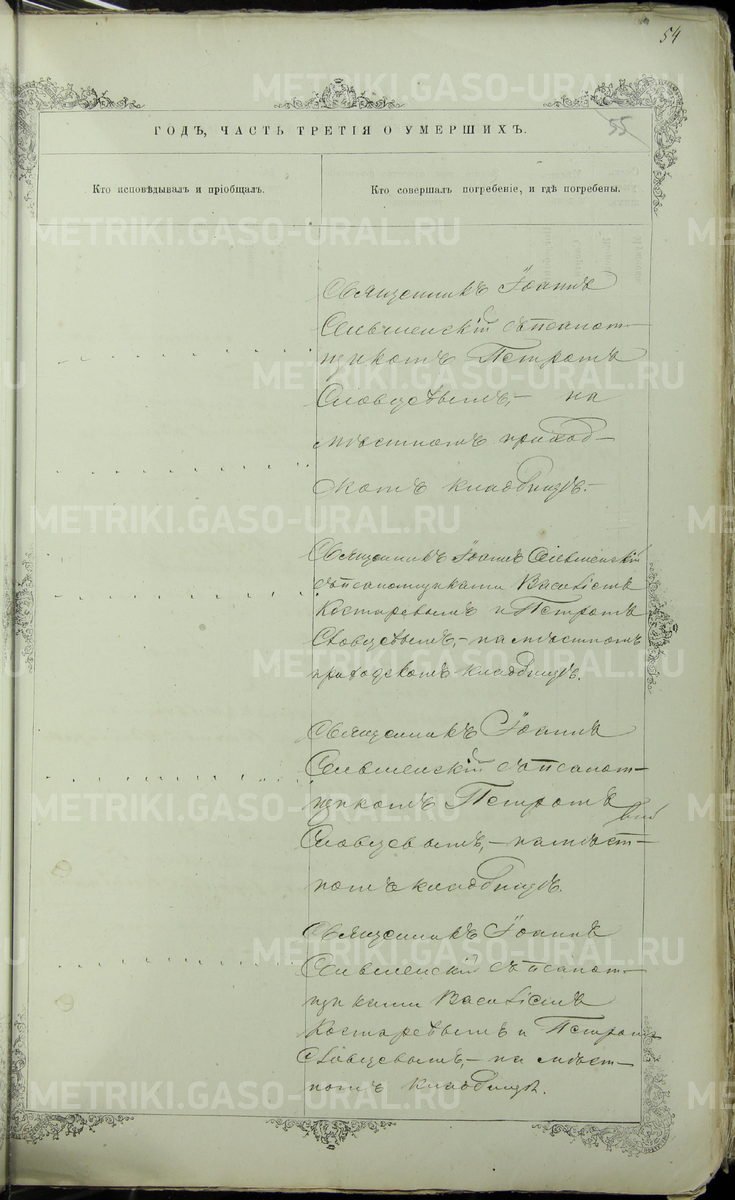 54
55
ГОДЪ, ЧАСТЬ ТРЕТІЯ О УМЕРШИХЪ.
Кто исповѣдывалъ и пріобщалъ.
Кто совершалъ погребеніе, и гдѣ погребены.
Священникъ Іоаннъ
съ псалом-
щикомъ Петромъ
на
мѣстномъ приход-
скомъ кладбищѣ.
Священникъ Іоаннъ
съ псаломщиками Василіемъ
Костаревымъ и Петромъ
на мѣстномъ
приходскомъ кладбищѣ.
Священникъ Іоаннъ
съ псалом-
щикомъ Петромъ
на мѣст-
номъ кладбищѣ.
Священникъ Іоаннъ
съ псалом-
щиками Василіемъ
Костаревымъ и Петромъ
на мѣст-
номъ кладбищѣ.
METRIKI.GASO-URAL.RU